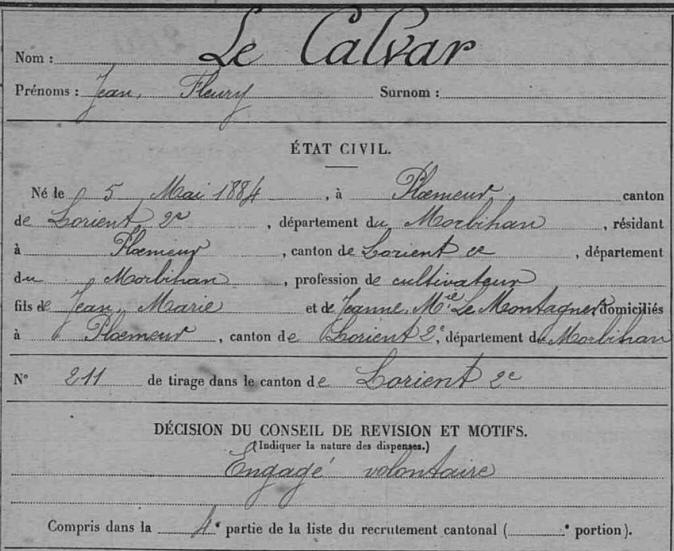 Nom : Le Calvar
Prénoms : Jean, Fleury Surnom :
ÉTAT CIVIL.
Né le 5 Mai 1884, à Plœmeur canton
de Lorient 2e, département du Morbihan, résidant
à Plœmeur, canton de Lorient 2e, département
du Morbihan, profession de cultivateur
fils de Jean, Marie et de Jeanne, Mie Le Montagner domiciliés
à Plœmeur, canton de Lorient 2e, département du Morbihan
N° 211 de tirage dans le canton de Lorient 2e
DÉCISION DU CONSEIL DE REVISION ET MOTIFS.
(Indiquer la nature des dispenses.)
Engagé volontaire
Compris dans la 4e partie de la liste du recrutement cantonal ( e portion).